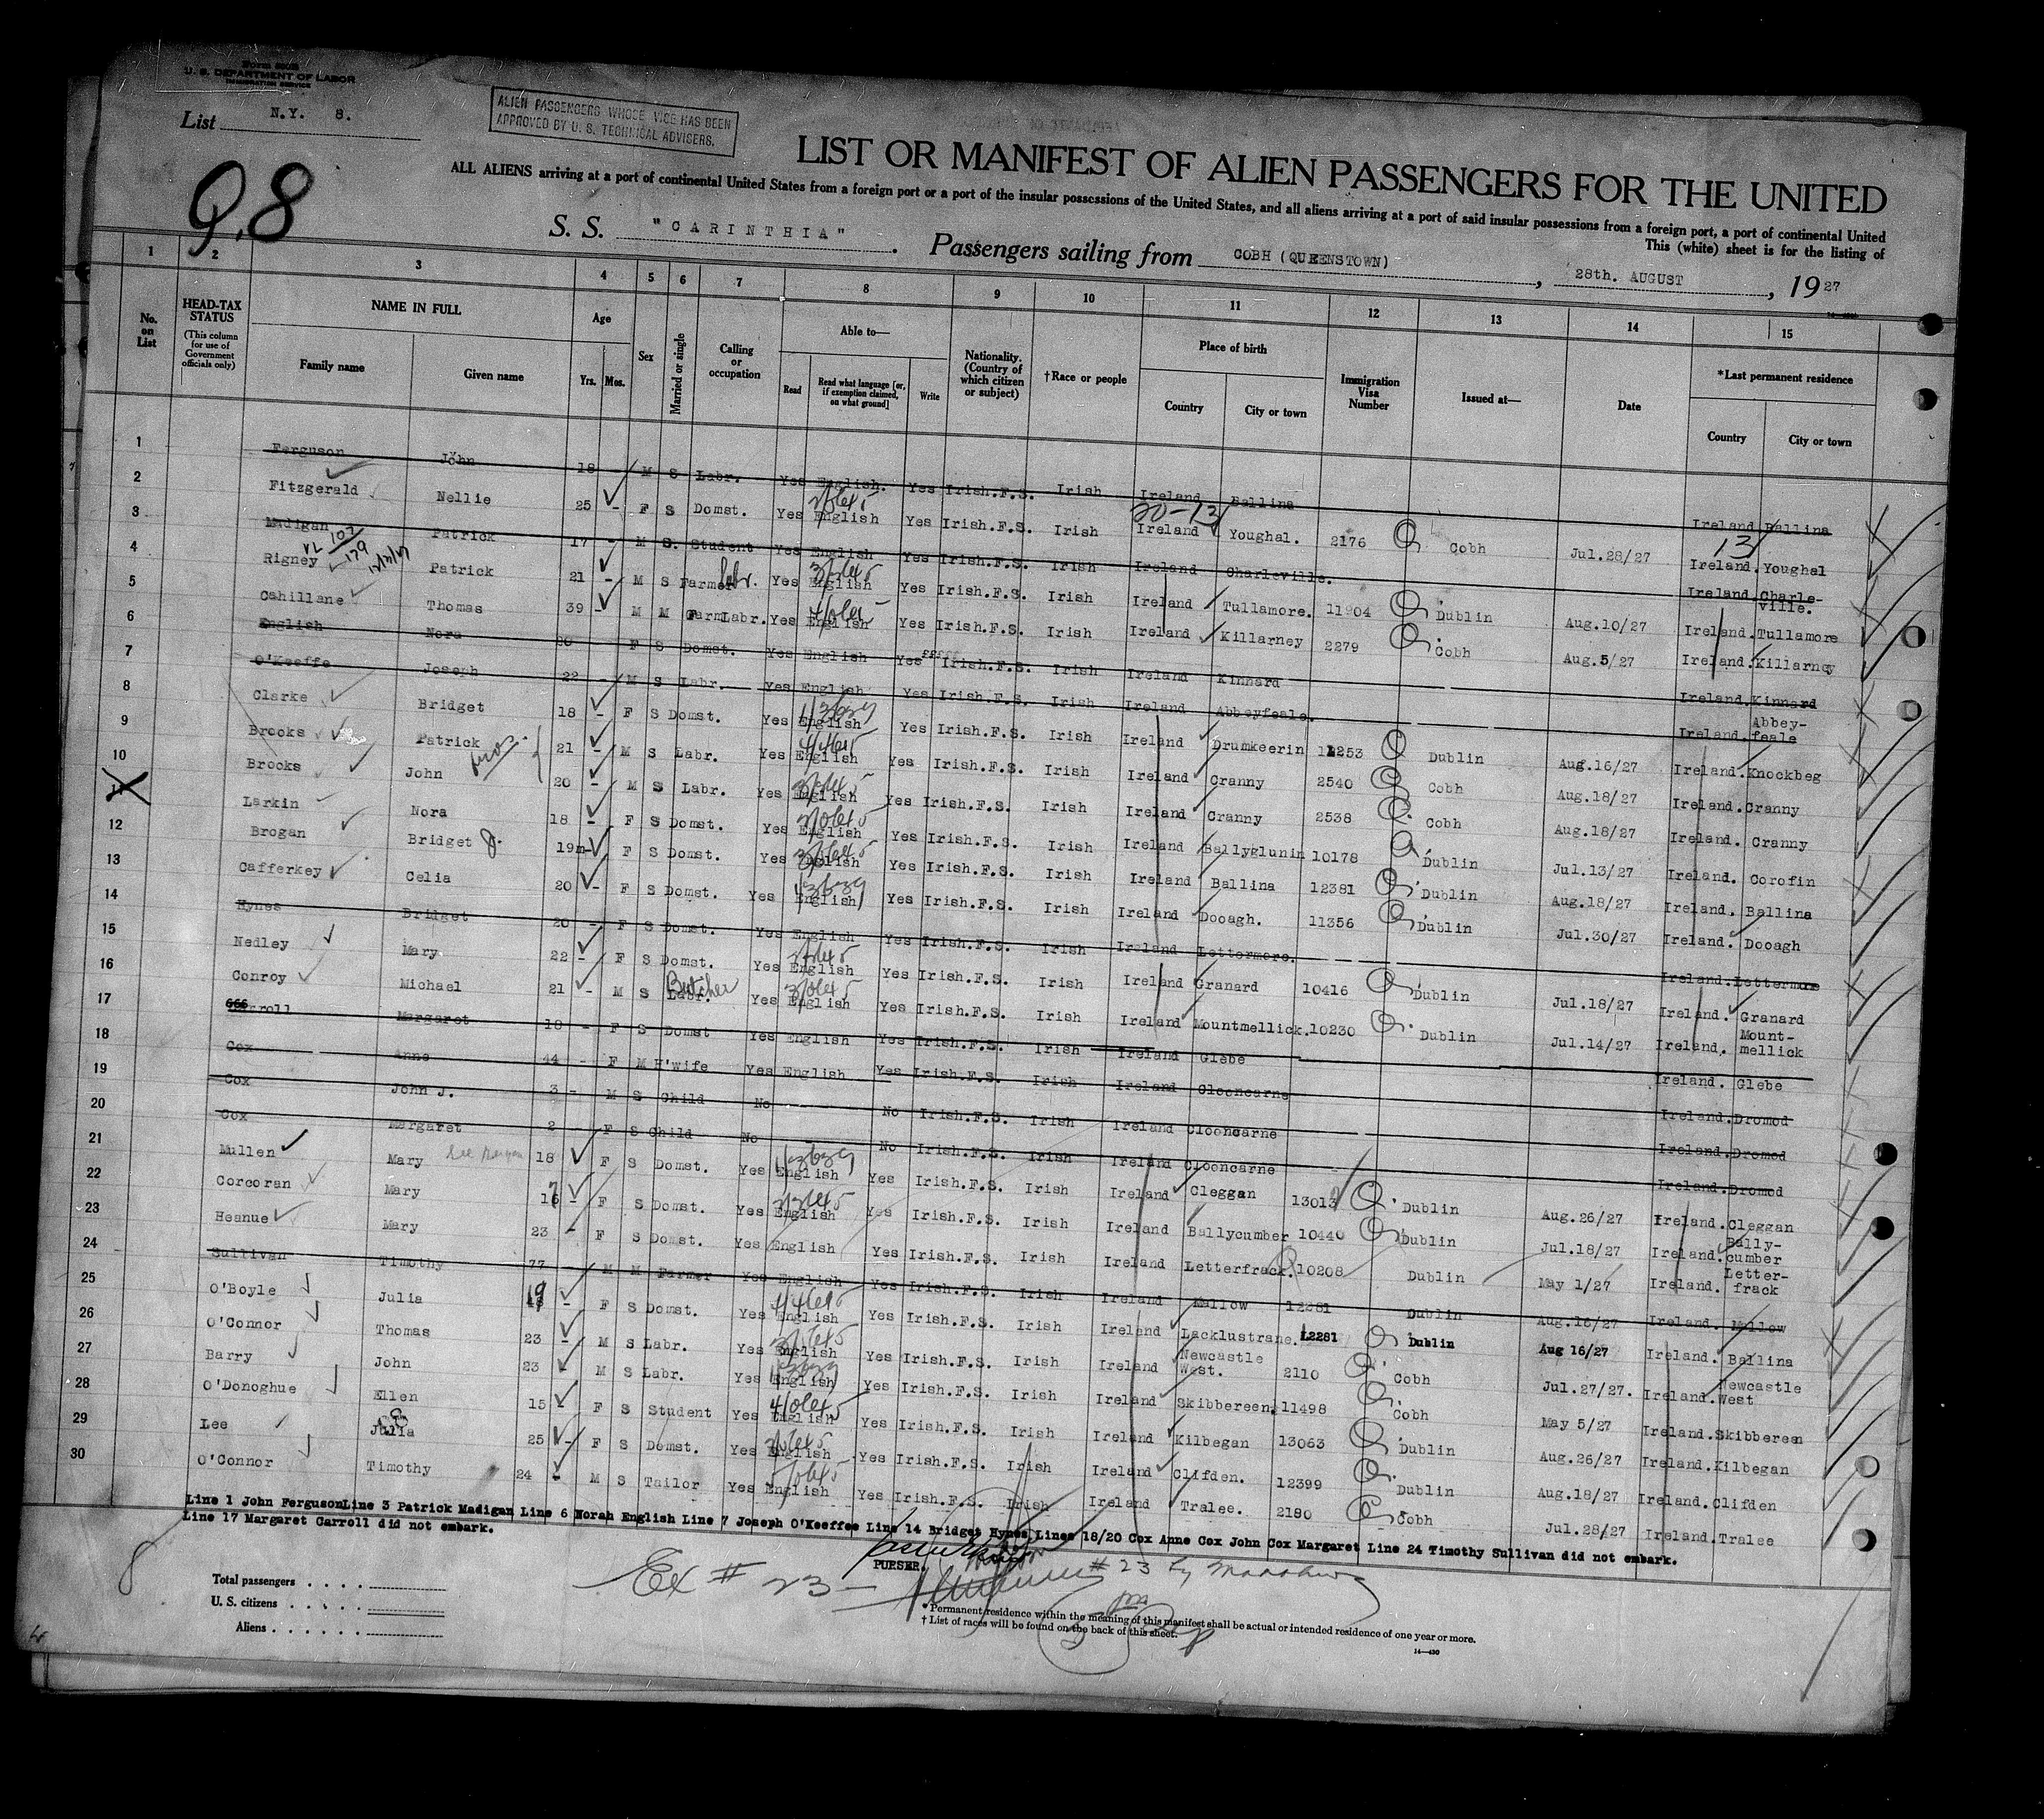 Form 500B
U. S. DEPARTMENT OF LABOR
IMMIGRATION SERVICE
List N.Y. 8.
ALIEN PASSENGERS WHOSE VICE HAS BEEN
APPROVED BY U. S. TECHNICAL ADVISERS.
98
LIST OR MANIFEST OF ALIEN PASSENGERS FOR THE UNITED
ALL ALIENS arriving at a port of continental United States from a foreign port or a port of the insular possessions of the United States, and all aliens arriving at a port of said insular possessions from a foreign port, a port of continental United
This (white) sheet is for the listing of
S. S. "CARINTHIA". Passengers sailing from COBH (QUEENSTOWN), 28th. AUGUST, 1927
1 2 3 4 5 6 7 8 9 10 11 12 13 14 15
No. on List
HEAD-TAX STATUS (This column for use of Government officials only)
NAME IN FULL Family name Given name
Age Yrs. Mos.
Sex
Married or single
Calling or occupation
Able to— Read Read what language [or, if exemption claimed, on what ground] Write
Nationality. (Country of which citizen or subject)
†Race or people
Place of birth Country City or town
Immigration Visa Number
Issued at—
Date
*Last permanent residence Country City or town
1 Ferguson John 18 - M S Labr. Yes English. Yes Irish.F.S. Irish Ireland Ballina Ireland Ballina
2 Fitzgerald Nellie 25 - F S Domst. Yes English Yes Irish.F.S. Irish Ireland Youghal. 2176 Cobh Jul.28/27 Ireland. Youghal
3 Madigan Patrick 17 - M S. Student Yes English Yes Irish.F.S. Irish Ireland Charleville. Ireland. Charle-ville.
4 Rigney Patrick 21 - M S Farmer Labr. Yes English Yes Irish.F.S. Irish Ireland Tullamore. 11904 Dublin Aug.10/27 Ireland. Tullamore
5 Cahillane Thomas 39 - M M FarmLabr. Yes English Yes Irish.F.S. Irish Ireland Killarney 2279 Cobh Aug.5/27 Ireland. Killarney
6 English Nora 20 - F S Domst. Yes English Yes Irish.F.S. Irish Ireland Kinnard Ireland. Kinnard
7 O'Keeffe Joseph 22 - M S Labr. Yes English Yes Irish.F.S. Irish Ireland Abbeyfeale. Ireland. Abbey-feale
8 Clarke Bridget 18 - F S Domst. Yes English Yes Irish.F.S. Irish Ireland Drumkeerin 12253 Dublin Aug.16/27 Ireland. Knockbeg
9 Brooks Patrick 21 - M S Labr. Yes English Yes Irish.F.S. Irish Ireland Cranny 2540 Cobh Aug.18/27 Ireland. Cranny
10 Brooks John 20 - M S Labr. Yes English Yes Irish.F.S. Irish Ireland Cranny 2538 Cobh Aug.18/27 Ireland. Cranny
11 Larkin Nora 18 - F S Domst. Yes English Yes Irish.F.S. Irish Ireland Ballyglunin 10178 Dublin Jul.13/27 Ireland. Corofin
12 Brogan Bridget J. 19 F S Domst. Yes English Yes Irish.F.S. Irish Ireland Ballina 12381 Dublin Aug.18/27 Ireland. Ballina
13 Cafferkey Celia 20 - F S Domst. Yes English Yes Irish.F.S. Irish Ireland Dooagh. 11356 Dublin Jul.30/27 Ireland. Dooagh
14 Hynes Bridget 20 - F S Domst. Yes English Yes Irish.F.S. Irish Ireland Lettermore. Ireland. Lettermore
15 Nedley Mary 22 - F S Domst. Yes English Yes Irish.F.S. Irish Ireland Granard 10416 Dublin Jul.18/27 Ireland. Granard
16 Conroy Michael 21 - M S Labr. Butcher Yes English Yes Irish.F.S. Irish Ireland Mountmellick. 10230 Dublin Jul.14/27 Ireland. Mount-mellick
17 Carroll Margaret 18 - F S Domst Yes English Yes Irish.F.S. Irish Ireland Glebe Ireland. Glebe
18 Cox Anne 44 - F M H'wife Yes English Yes Irish.F.S. Irish Ireland Clooncarne Ireland. Dromod
19 Cox John J. 3 - M S Child No No Irish.F.S. Irish Ireland Clooncarne Ireland. Dromod
20 Cox Margaret 2 - F S Child No No Irish.F.S. Irish Ireland Clooncarne Ireland. Dromod
21 Mullen Mary 18 F S Domst. Yes English Yes Irish.F.S. Irish Ireland Cleggan 13013 Dublin Aug.26/27 Ireland. Cleggan
22 Corcoran Mary 16 - F S Domst. Yes English Yes Irish.F.S. Irish Ireland Ballycumber 10440 Dublin Jul.18/27 Ireland. Bally-cumber
23 Heanue Mary 23 - F S Domst. Yes English Yes Irish.F.S. Irish Ireland Letterfrack. 10208 Dublin May 1/27 Ireland. Letter-frack
24 Sullivan Timothy 77 - M M Farmer Yes English Yes Irish.F.S. Irish Ireland Mallow 12281 Dublin Aug.16/27 Ireland. Mallow
25 O'Boyle Julia 19 - F S Domst. Yes English Yes Irish.F.S. Irish Ireland Lacklustrane. 12281 Dublin Aug 16/27 Ireland. Ballina
26 O'Connor Thomas 23 - M S Labr. Yes English Yes Irish.F.S. Irish Ireland Newcastle West. 2110 Cobh Jul.27/27. Ireland. Newcastle West
27 Barry John 23 - M S Labr. Yes English Yes Irish.F.S. Irish Ireland Skibbereen. 11498 Cobh May 5/27 Ireland. Skibbereen
28 O'Donoghue Ellen 15 - F S Student Yes English Yes Irish.F.S. Irish Ireland Kilbegan 13063 Dublin Aug.26/27 Ireland. Kilbegan
29 Lee Julia 25 - F S Domst. Yes English Yes Irish.F.S. Irish Ireland Clifden. 12399 Dublin Aug.18/27 Ireland. Clifden
30 O'Connor Timothy 24 - M S Tailor Yes English Yes Irish.F.S. Irish Ireland Tralee. 2180 Cobh Jul.28/27 Ireland. Tralee
Line 1 John FergusonLine 3 Patrick Madigan Line 6 Norah English Line 7 Joseph O'Keeffee Line 14 Bridget Hynes, Lines 18/20 Cox Anne Cox John Cox Margaret Line 24 Timothy Sullivan did not embark.
Line 17 Margaret Carroll did not embark.
PURSER.
Ex # 23 —
# 23
Total passengers
U. S. citizens
Aliens
* Permanent residence within the meaning of this manifest shall be actual or intended residence of one year or more.
† List of races will be found on the back of this sheet.
14—430